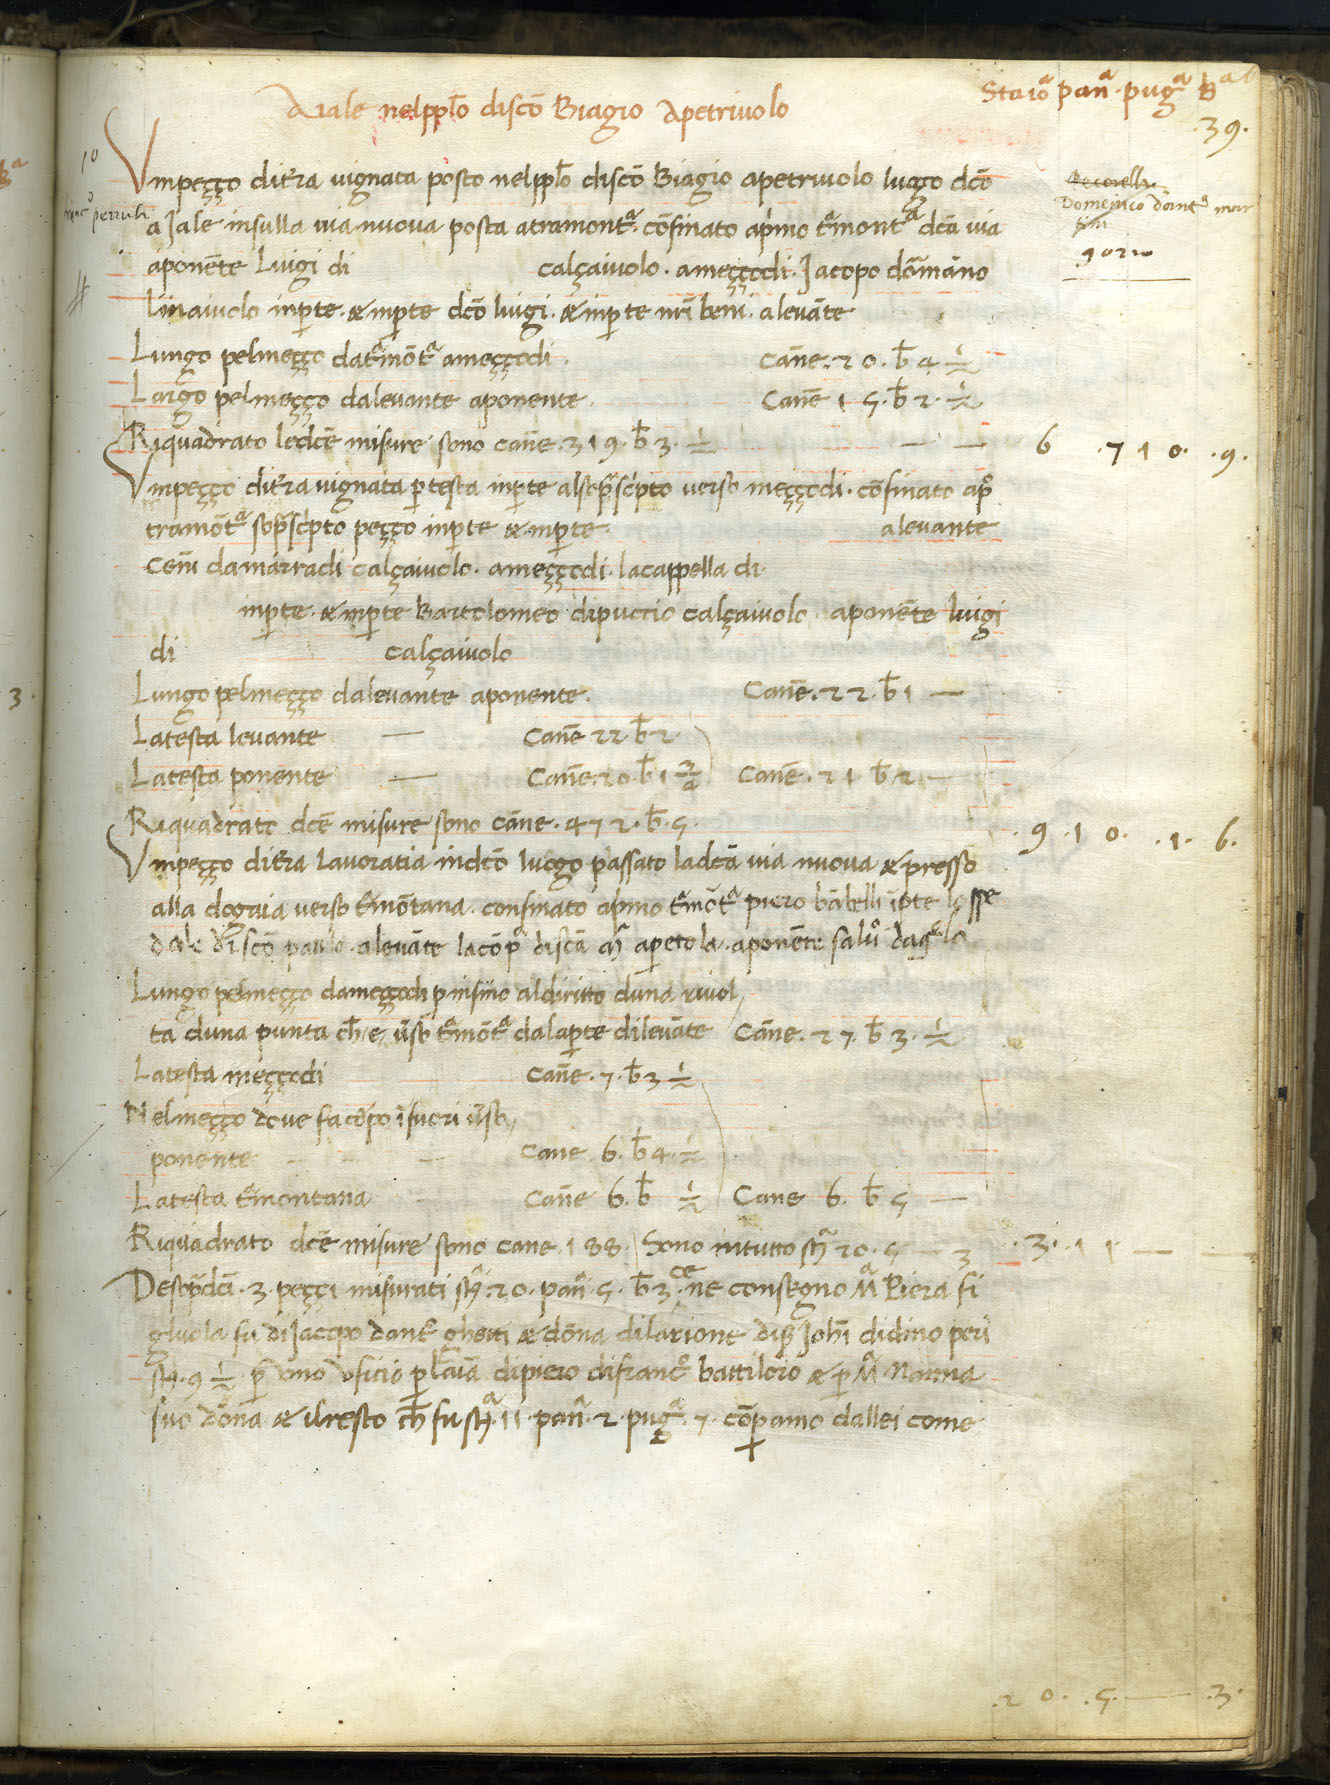 Aiale nelpplō discō Biagio Apetriuolo
Staioᵃ panᵃ pugᵃ Bᵃ
·39·
1º
Vmpeçço diťra uignata posto nelpplō discō Biagio apetriuolo luogo dcō
aJale insulla uia nuoua posta atramontᵃ. cōfinato apͥmo tᵃmontᵃ dcā uia
aponēte Luigi di calçaiuolo. ameççodi. Jacopo domāno
linaiuolo inꝑte. & inꝑte dcō luigi. & inꝑte nrī beni. aleuāte
Domenico dant⁰ mar
tini
Lungo pelmeçço datᵃmōtᵃ ameççodi. Canē. 20. b̄ 4 ½
Largo pelmeçço daleuante aponente. Canē 15. b̄ 2. ½
Riquadrato ledcē misure sono canē. 319. b̄ 3. ½ — — 6 .710. .9.
Vmpeçço diťra uignata ꝑ testa inꝑte alsopᵃscͥpto uerso meççodi. cōfinato apͦ
tramōtᵃ sopᵃscͥpto peçço inꝑte & inꝑte aleuante
Ceni damarradi calçaiuolo. ameççodi. lacappella di
inꝑte. & inꝑte Bartolomeo dipuccio calçaiuolo. aponēte luigi
di calçaiuolo
Lungo pelmeçço daleuante aponente. Canē. 22. b̄ 1 —
Latesta leuante — Canē 22. b̄ 2.
Latesta ponente — Canē. 20. b̄ 1 ¾ Canē. 21 b̄ 2 —
Riquadrato dcē misure sono cāne. 472. b̄. 5. .9.10. .1. 6.
Vmpeçço diťra lauoratia indcō luogo passato ladcā uia nuoua & presso
alla dogaia uerso tᵃmōtana. confinato apͥmo tᵃmōtᵃ piero bābelli
dale di scō paulo. aleuāte lacōpᵃ discā mᵃ apetola. aponēte
Lungo pelmeçço dameççodi ꝑ insino aldiritto duna riuol
ta duna punta ch̄ e ūso tᵃmōtᵃ dalaꝑte dileuāte Cāne. 27. b̄ 3. ½
Latesta meççodi Canē. 7. b̄ 3 ½
Nelmeçço doue fa cōpo īfuori ūso
ponente — — — Cane 6. b̄ 4. ½
Latesta tᵃmontana Canē 6. b̄ ½ Cane 6. b̄ 5 —
Riquadrato dcē misure sono cane 188. Sono intutto stᵃ 20. 5 — 3 .3. 11. — —
Desopᵃdcī. 3. peççi misurati stᵃ. 20. panᵃ. 5. b̄ 3. ce ne consegno Mᵃ Piera fi
gluola fu diJacopo dant⁰ ghetti & dōna dilarione
stᵃ. 9 ½ ꝑ uno uficio ꝑ laīa dipiero difranc⁰ battiloro & ꝑ Mᵃ Nanna
suo dōna & ilresto ch̄ fu stᵃ 11. panᵃ. 2. pugᵃ. 7. cōpamo dallei come
.20. .5. — .3.